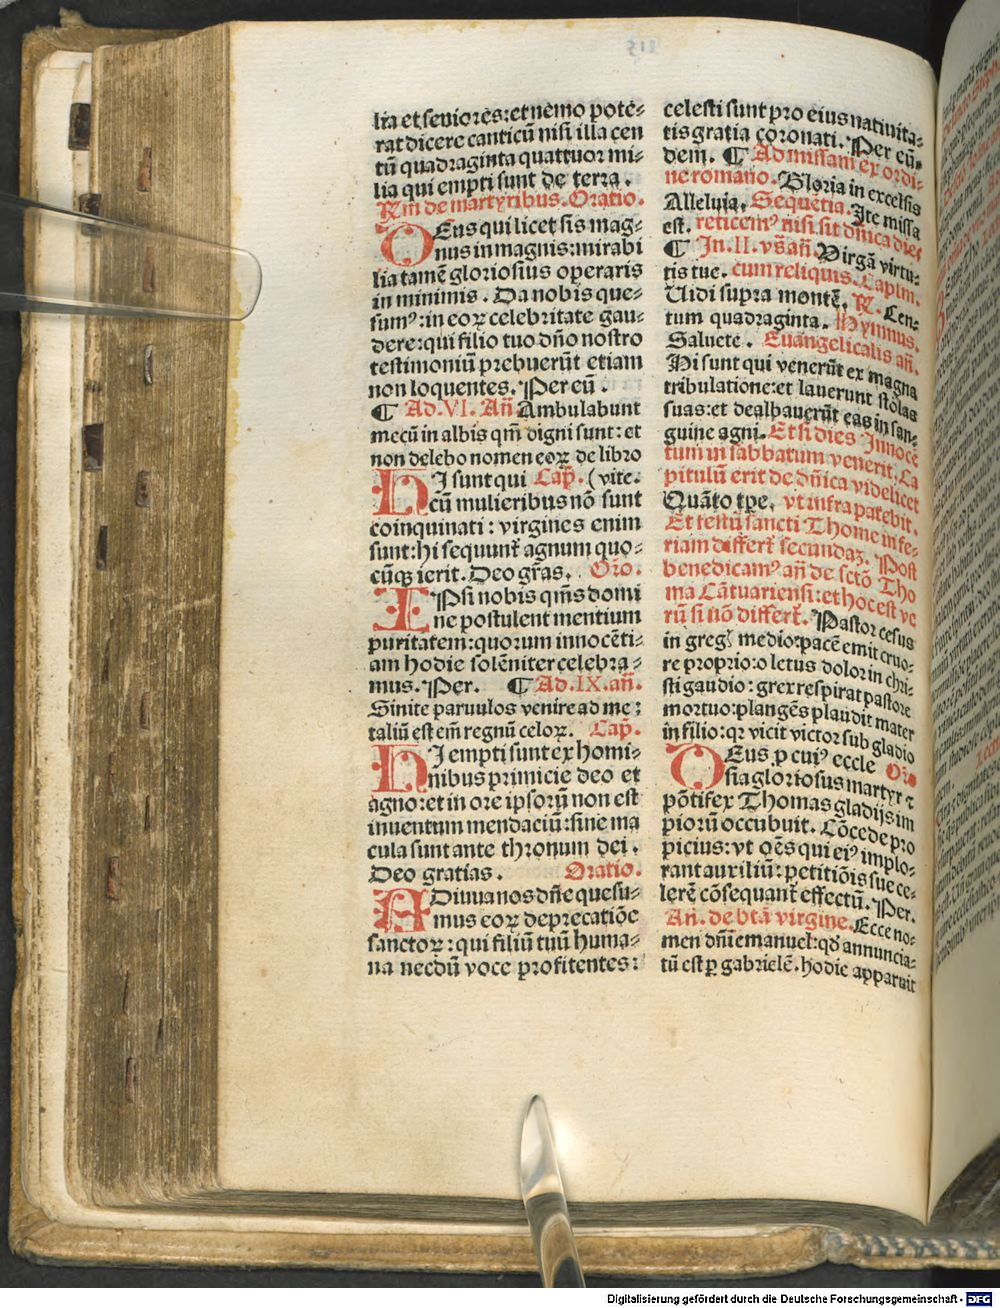 lia et seniores: et nemo pote⸗
rat dicere canticū nisi illa cen
tū quadraginta quattuor mi⸗
lia qui empti sunt de terra.
℟m de martyribus. Oratio.
DEus qui licet sis mag⸗
nus in magnis: mirabi
lia tamē gloriosius operaris
in minimis. Da nobis que⸗
sumꝰ: in eoꝝ celebritate gau⸗
dere: qui filio tuo dño nostro
testimoniū prebuerūt etiam
non loquentes. Per eū.
¶ Ad. VI. Añ Ambulabunt
mecū in albis qm̄ digni sunt: et
non delebo nomen eoꝝ de libro
HI sunt qui Cap̄. (vite.
cū mulieribus nō sunt
coinquinati: virgines enim
sunt: hi sequunt̄ agnum quo⸗
cūqꝫ ierit. Deo gr̄as. Oro.
IPsi nobis qm̄s domi
ne postulent mentium
puritatem: quorum innocēti⸗
am hodie solēniter celebra⸗
mus. Per. ¶ Ad. IX. añ.
Sinite paruulos venire ad me:
taliū est em̄ regnū celoꝝ. Cap̄.
HI empti sunt ex homi⸗
nibus primicie deo et
agno: et in ore ipsorū non est
inuentum mendaciū: sine ma
cula sunt ante thronum dei.
Deo gratias. Oratio.
ADiuua nos dñe quesu⸗
mus eoꝝ deprecatiōe
sanctoꝝ: qui filiū tuū huma⸗
na necdū voce profitentes:
celesti sunt pro eius natiuita⸗
tis gratia coronati. Per eū⸗
dem. ¶ Ad missam ex ordi⸗
ne romano. Gloria in excelsis
Alleluia. Sequētia. Ite missa
est. reticemꝰ nisi sit dn̄ica dies
¶ In. II. vs̄ añ. Virgā virtu⸗
tis tue. cum reliquis. Caplm.
Uidi supra montē. ℟. Cen⸗
tum quadraginta. Hymnus.
Saluete. Euangelicalis añ.
Hi sunt qui venerūt ex magna
tribulatione: et lauerunt stolas
suas: et dealbauerūt eas in san⸗
guine agni. Et si dies Innocē
tum in sabbatum venerit, Ca
pitulū erit de dn̄ica videlicet
Quāto tꝑe. vt infra patebit.
Et festū sancti Thome in fe⸗
riam differt̄ secundaꝫ. Post
benedicamꝰ añ de sctō Tho
ma Cātuariensi: et hoc est ve
rū si nō differt̄. Pastor cesus
in greḡ medio: pacē emit cruo⸗
re proprio: o letus dolor in chri⸗
sti gaudio: grex respirat pastore
mortuo: plangēs plaudit mater
in filio: qꝛ vicit victor sub gladio
DEus ꝓ cuiꝰ eccle Oro
sia gloriosus martyr ⁊
pōtifex Thomas gladijs im
piorū occubuit. Cōcede pro
picius: vt oēs qui eiꝰ implo⸗
rant auxiliū: petitiōis sue ce⸗
lerē cōsequant̄ effectū. Per.
Añ. de btā virgine. Ecce no⸗
men dñi emanuel: qd̓ annuncia⸗
tū est ꝑ gabrielē. hodie apparuit
Digitalisierung gefördert durch die Deutsche Forschungsgemeinschaft - DFG